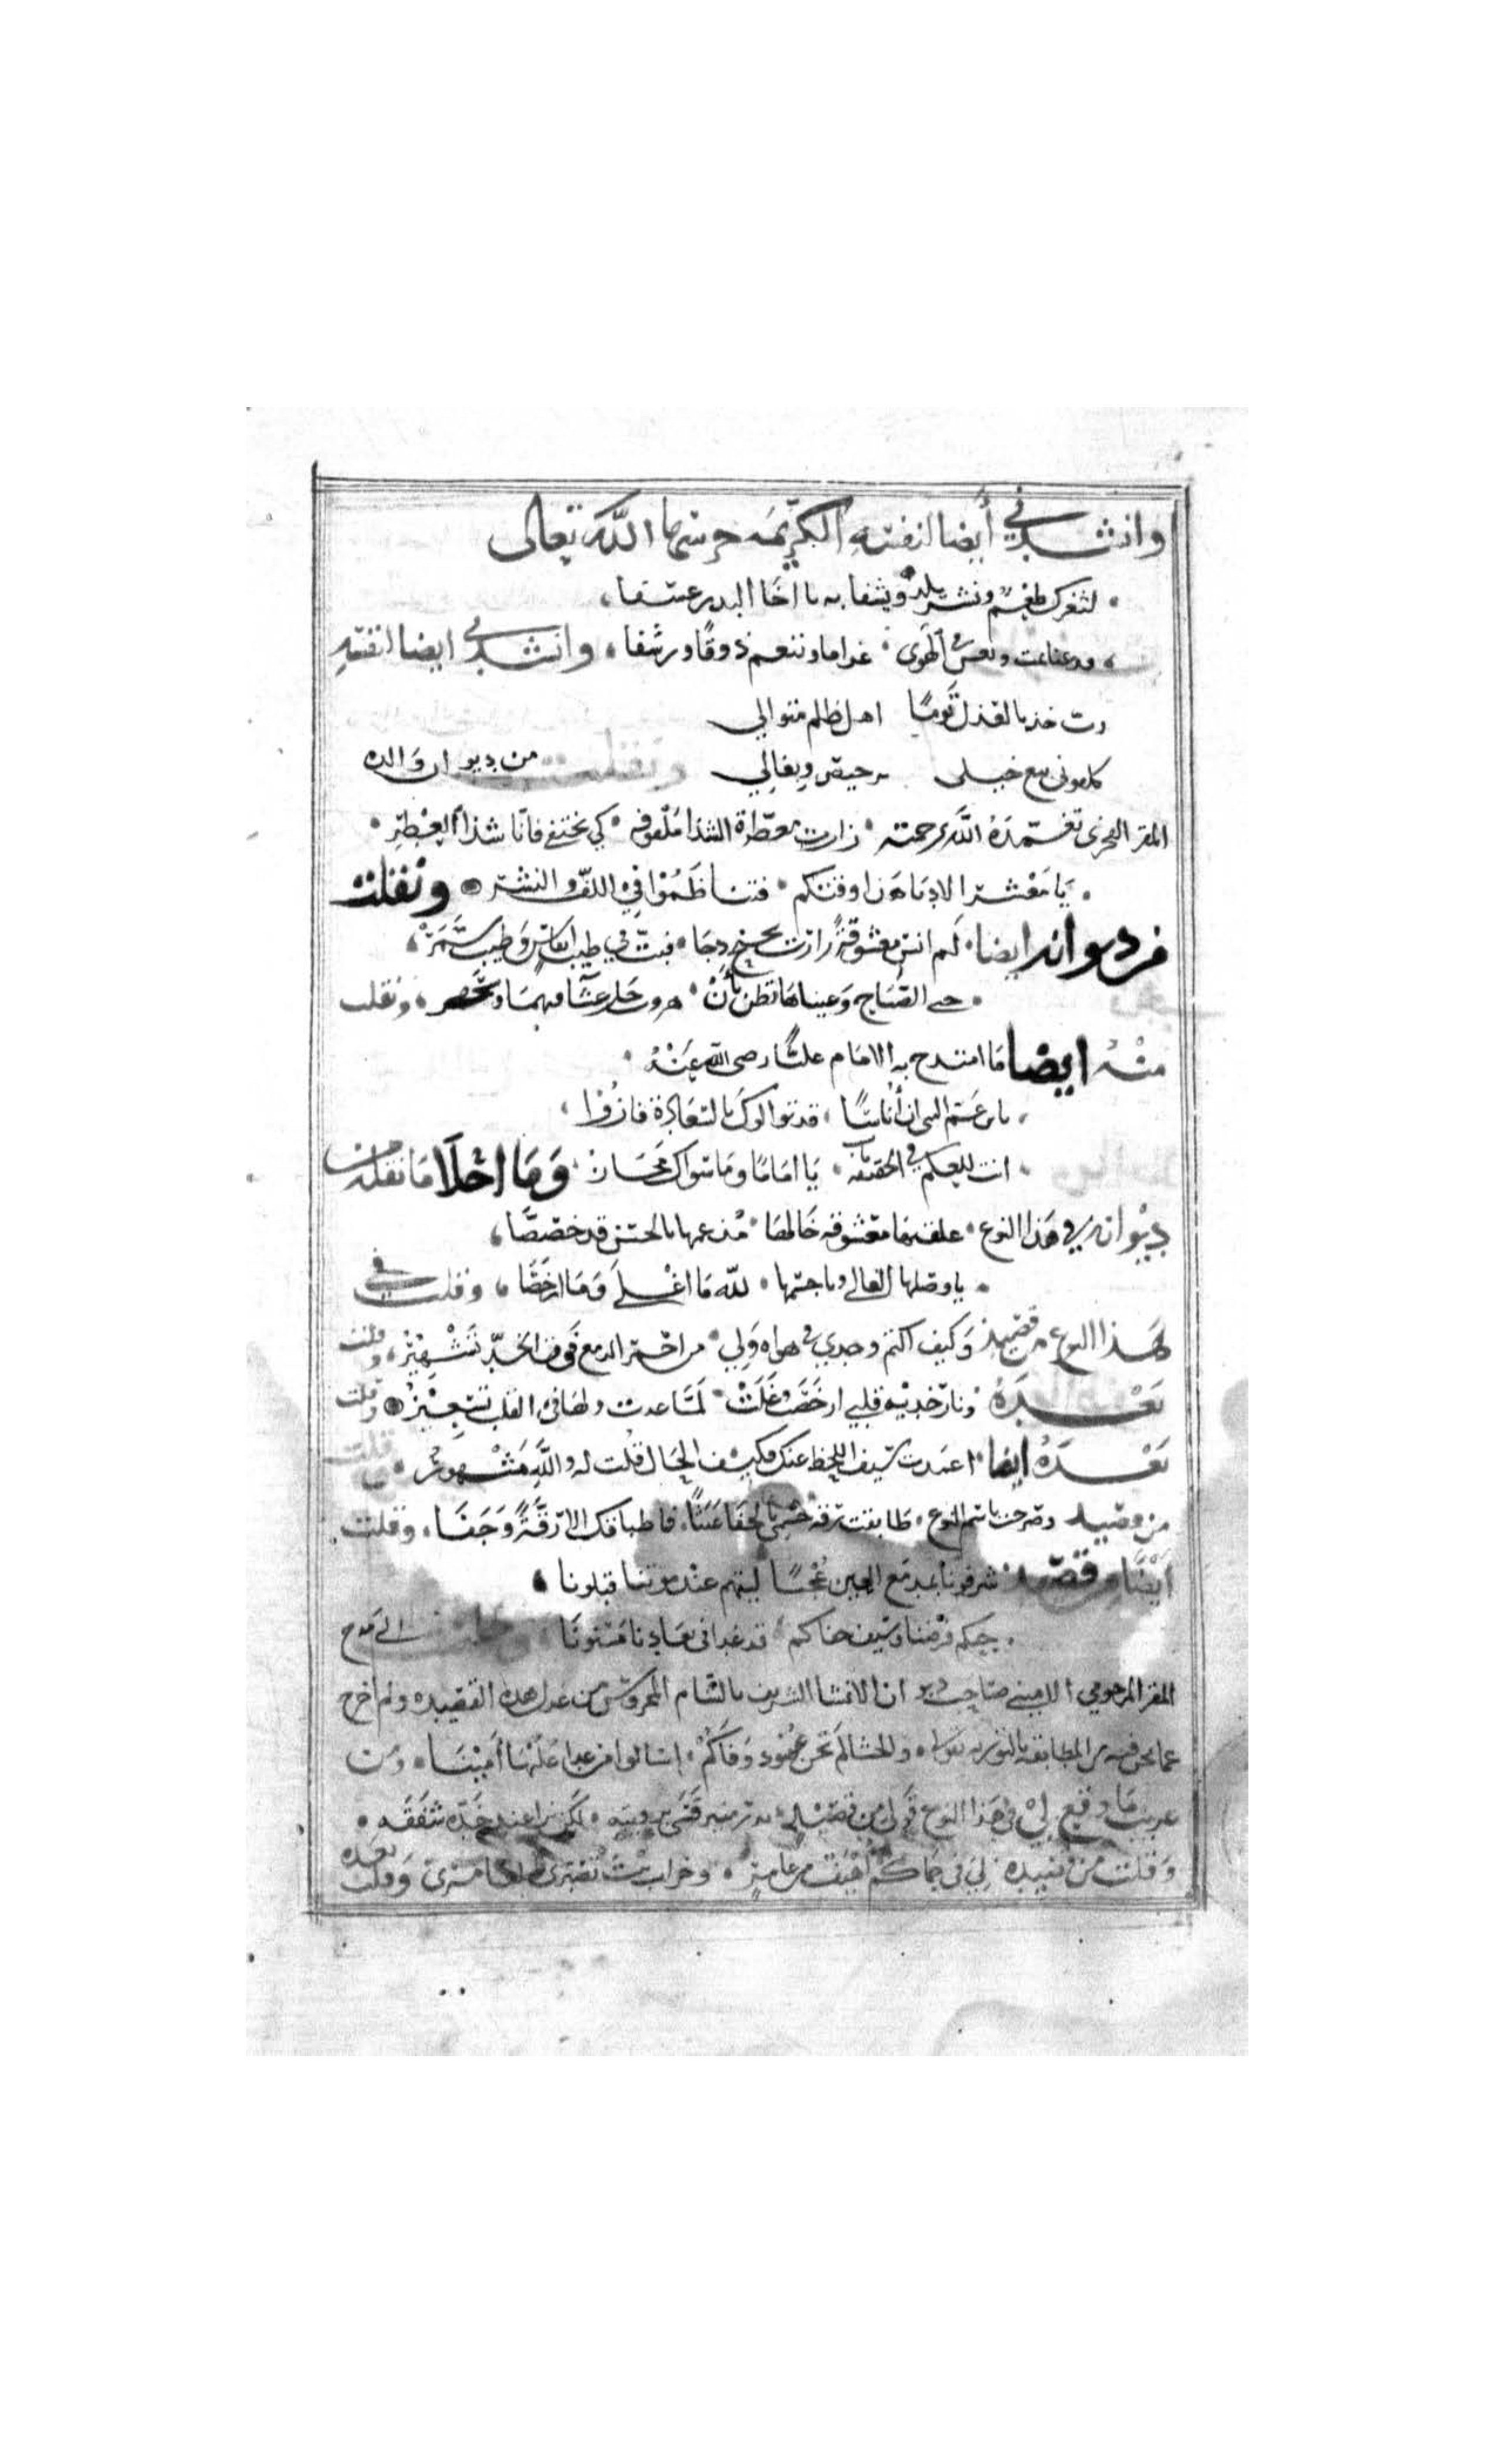 وانشدني أيضا لنفسه الكريمَه حرسها اللّه تعالى
لثغرك طعمٌ ونشرٌ يلذّ ويشفا به يا اخَا البدر عشقا
الهَوى غراما وننعم ذوقًا ورشفا وانشدني ايضا لنفسِهِ
رب خذ بالعَذل قَومًا اهل ظلم متوالي
كلفوني بيع خيلي برخيص وبغالي من ديوان وَالده
المقر الفخري تغمّدَهُ اللَّه برحمته زارت معطّرة الشذا ملفوفه كي تختفي فاتا شذا العِطرِ
يَا مَعْشَر الادبَا هَذا وقتكم فتناظَمُوْا فيْ اللفِّ والنشر ونقلت
من ديوانه ايضا لَم انس معشوقَةً زارت بجنح دجَا فبتُّ في طيبِ انفاسٍ وَطيب سَمَرْ
حتى الصَّبَاح وَعيناهَا تظن بأنْ ونقلت
منْهُ ايضا مَا امتدح به الامَام عليًّا رضي اللّه عَنْهُ
يا ابن عَم النبي ان أناسًا قد توالوك بالسّعَادة فازُوا
انت للعِلم في الحقيقه باب يَا امَامًا ومَا سواكَ مَجَازْ وَمَا احْلَا مَا نقلته من
ديوانه في هَذا النوع علقتهَا معشوقه خَالهَا مُذ عمها بالحسْن قد خصّصَا
يا وصلها الغالي ويا جسمها للّه مَا اغْلَى وَمَا ارْخَصَا وقلت في
هَذا النوع من قصيدٍ وَكيف اكتم وجدي في هواه وَلي من احمر الدمع فَوق الخدّ تَشْهِيْرُ وقلت
بَعْدَهُ ونَار خديْهِ قلبي ارخَصَتْ وغَلَتْ لمّا غدت ولهَا في القلب تَسْعِيْرُ وقلت
بَعْدَهُ ايضا اغمدت سَيف اللحظ عنك فكيف الحَال قُلت له واللَّهِ مَشْهورُ وقلت
من قصيد وصرحت باسم النوع طابقت رقه جسْمي بالجفَا عَبَثًا فاطباقك الا رقَّةً وَجَفَا وقلت
ايضًا من قصيد شرفونا بمدمَع العين غُسْلًا ليتهم عند موتنا قبلونا
حبكم فرضنا وسَيف جفاكم قد غدا في بعَادنا مَسْنونَا الى مَدح
المقر المرحومي الاميني صَاحب ديوان الانشا الشريف بالشام المحروس من غزل هده القصيده ولم اخرج
عما نحن فيه من المطابقه بالتوريه بقولي والحشا لم تخن عُهُود وَفَاكُمْ إسَالوا من غدا عَلَيْها أَمِيْنَا ومن
غريب مَا وقع ليْ في هَذا النوع قَولي من قصيد
وَقلت من قصيده لِي في حِمَاكم وقلت بعده